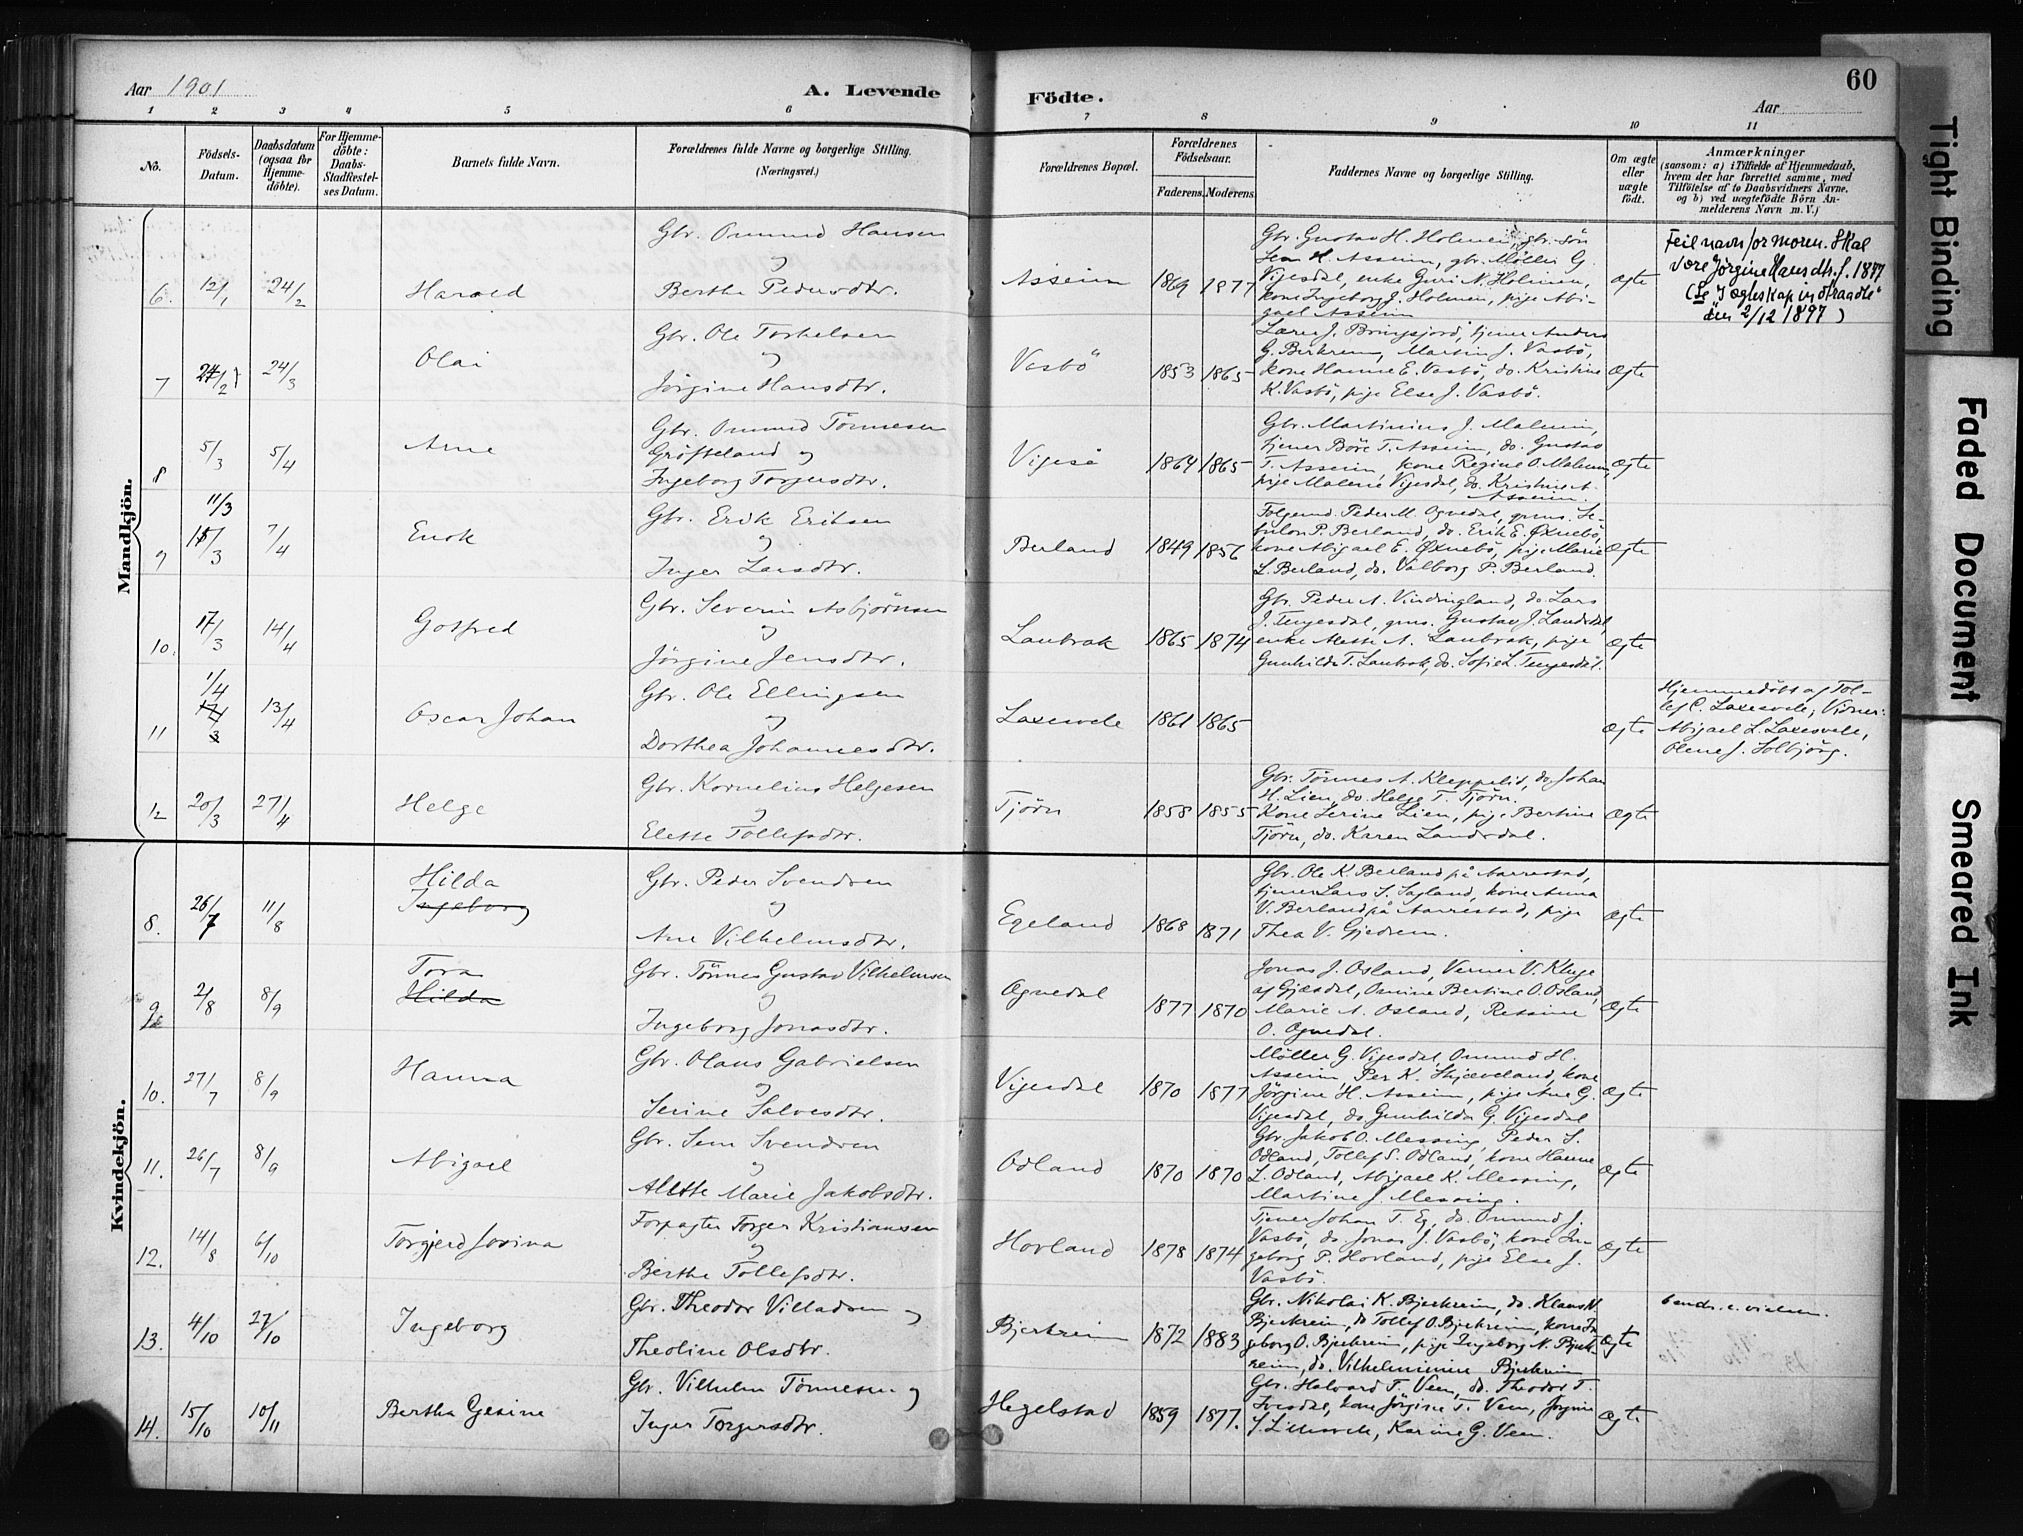 Aar 1901
A. Levende
Födte.
60
Aar
1 2 3 4 5 6 7 8 9 10 11
No.
Födsels-
Datum.
Daabsdatum
(ogsaa for
Hjemme-
döbte).
For Hjemme-
döbte:
Daabs-
Stadfæstel-
ses Datum.
Barnets fulde Navn.
Forældrenes fulde Navne og borgerlige Stilling.
(Næringsvei.)
Forældrenes Bopæl.
Forældrenes
Födselsaar.
Faderens. Moderens.
Faddernes Navne og borgerlige Stilling.
Om ægte
eller
uægte
födt.
Anmærkninger
(saasom: a) i Tilfælde af Hjemmedaab,
hvem der har forrettet samme, med
Tilföielse af to Daabsvidners Navne,
og b) ved uægtefödte Börn An-
melderens Navn m. V.)
Mandkjön.
6. 12/1 24/2 Harald
Gbr. Omund Hansen
og
Berthe Pedersdtr.
Asseim 1869 1877
Gbr. Gustav H. Holmen, gbr. sön
Sem H. Asseim, gbr. Möller G.
Vigesdal, enke Guri N. Holmen,
kone Ingeborg J. Holmen, pige Abi-
gael Asseim
Ægte
Feil navn for moren. Skal
være Jörgine Hansdtr. f. 1877
(Se "I ægteskap indtraadte"
den 2/12 1897)
7 24/2 24/3 Olai
Gbr. Ole Torkelsen
og
Jörgine Hansdtr.
Vasbö 1853 1865
Lærer J. Bringsjord, tjener Anders
G. Birkrem, Martin J. Vasbö,
kone Hanne E. Vasbö, do. Kristine
K. Vasbö, pige Else J. Vasbö.
Ægte
8 5/3 5/4 Arne
Gbr. Omund Tönnesen
Gröfteland og
Ingeborg Torgersdtr.
Vigeså 1864 1865
Gbr. Martinius J. Malmin,
tjener Böre T. Asseim, do. Gustav
T. Asseim, kone Regine O. Malmin,
pige Malene Vigesdal, do. Kristine A.
Asseim.
Ægte
9 11/3 15/3 7/4 Enok
Gbr. Erik Eriksen
og
Inger Larsdtr.
Berland 1849 1856
Folgemd. Peder M. Ognedal, grms. Se-
bulon P. Berland, do. Erik E. Øxnebö,
kone Abigael E. Øxnebö, pige Marie
L. Berland, do. Valborg P. Berland.
Ægte
10. 17/3 14/4 Gotfred
Gbr. Severin Asbjörnsen
og
Jörgine Jensdtr.
Laubrak 1865 1874
Gbr. Peder A. Vindingland, do. Lars
J. Tengesdal, grms. Gustav J. Landsdal,
enke Mette A. Laubrak, pige
Gunhilde T. Laubrak, do. Sofie L. Tengesdal.
Ægte
11 1/4 13/4 Oscar Johan
Gbr. Ole Ellingsen
og
Dorthea Johannesdtr.
Laxesvele 1861 1865
Ægte
Hjemmedöbt af Tol-
lef C. Laxesvele; Vidner:
Abigael L. Laxesvele,
Olene J. Solbjörg.
12 20/3 27/4 Helge
Gbr. Kornelius Helgesen
og
Elette Tollefsdtr.
Tjörn 1858 1855
Gbr. Tönnes A. Kleppelid, do. Johan
H. Lien, do. Helge T. Tjörn.
Kone Serine Lien, pige Bertine
Tjörn, do. Karen Landsdal.
Ægte
Kvindekjön.
8. 26/7 11/8 Hilda
Ingeborg
Gbr. Peder Svendsen
og
Ane Vilhelmsdtr.
Egeland 1868 1871
Gbr. Ole K. Berland på Aarrestad,
tjener Lars S. Sagland, kone Anna
V. Berland på Aarrestad, pige
Thea V. Gjedrem.
Ægte
9 2/8 8/9 Tora
Hilda
Gbr. Tönnes Gustav Vilhelmsen
og
Ingeborg Jonasdtr.
Ognedal 1877 1870
Jonas J. Osland, Verner V. Kluge
af Gjæsdal, Omine Bertine O. Osland,
Marie A. Osland, Retsine
O. Ognedal.
Ægte
10. 27/7 8/9 Hanna
Gbr. Olaus Gabrielsen
og
Serine Salvesdtr.
Vigesdal 1870 1877
Möller G. Vigesdal, Omund H.
Asseim, Per K. Skjæveland, kone
Jörgine H. Asseim, pige Ane G.
Vigesdal, do. Gunhilda G. Vigesdal
Ægte
11. 26/7 8/9 Abigael
Gbr. Sem Svendsen
og
Alette Marie Jakobsdtr.
Odland 1870 1870
Gbr. Jakob O. Messing, Peder S.
Odland, Tollef S. Odland, kone Hanne
L. Odland, Abigael K. Messing,
Martine J. Messing.
Ægte
12. 14/8 6/10 Torgjerd Jorina
Forpagter Torger Kristiansen
og
Berthe Tollefsdtr.
Hovland 1878 1874
Tjener Johan T. Eg, do. Omund J.
Vasbö, do. Jonas J. Vasbö, kone In-
geborg P. Hovland, pige Else J.
Vasbö.
Ægte
13. 4/10 27/10 Ingeborg
Gbr. Theodor Villadsen og
Theoline Olsdtr.
Bjerkreim 1872 1883
Gbr. Nikolai K. Bjerkreim, do. Klaus N.
Bjerkreim, do Tollef O. Bjerkreim, kone In-
geborg O. Bjerkreim, pige Ingeborg N. Bjerk-
reim, do. Vilhelminine Bjerkreim
Ægte
6 mdr. e. vielsen.
14. 15/10 10/11 Bertha Gesine
Gbr. Vilhelm Tönnesen og
Inger Torgersdtr.
Hegelstad 1859 1877.
Gbr. Halvard T. Veen, do. Theodor T.
Ivesdal, kone Jörgine T. Veen, Jörgine
Karine G. Veen.
Ægte
Tight Binding
Faded Document
Smeared Ink